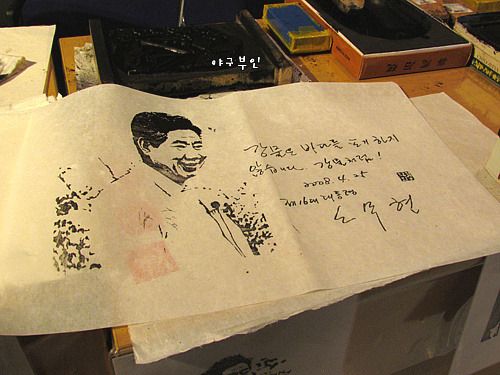 야구부인
강물은 바다를 포기하지
않습니다. 강물처럼!
2008. 4. 25
제16대 대통령
노무현